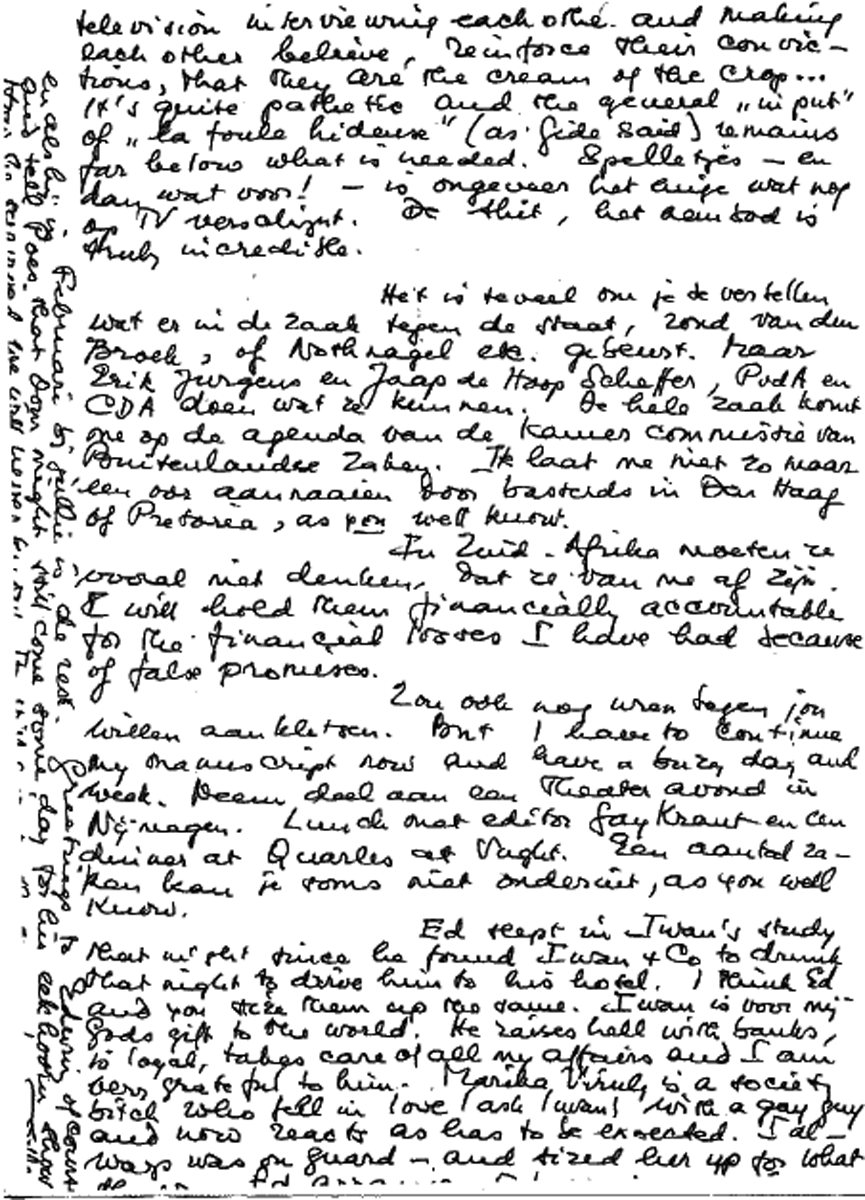 television interviewing each other and making
each other believe, reinforce their convic-
tions, that they are the cream of the crop...
It's quite pathetic and the general „in put"
of „la foule hideuse" (as Gide said) remains
far below what is needed. Spelletjes – en
dan wat voor! – is ongeveer het enige wat nog
op TV verschijnt. De shit, het aanbod is
truly incredible.
Het is teveel om je te vertellen
wat er in de zaak tegen de staat, rond van den
Broek, of Nothnagel etc. gebeurt. Maar
Erik Jurgens en Jaap de Hoop Scheffer, PvdA en
CDA doen wat ze kunnen. De hele zaak komt
nu op de agenda van de Kamer commissie van
Buitenlandse Zaken. Ik laat me niet zo maar
een oor aannaaien door basterds in Den Haag
of Pretoria, as you well know.
In Zuid-Afrika moeten ze
vooral niet denken, dat ze van me af zijn.
I will hold them financially accountable
for the financial losses I have had because
of false promises.
Zou ook nog uren tegen jou
willen aankletsen. But I have to continue
my manuscript now and have a busy day and
week. Neem deel aan een Theater avond in
Nijmegen. Lunch met editor Gay Kraut en een
dinner at Quarles at Vught. Een aantal za-
ken kan je soms niet onderuit, as you well
know.
Ed slept in Iwan's study
that night since he found Iwan & Co to drunk
that night to drive him to his hotel. I think Ed
and you size them up the same. Iwan is voor mij
Gods gift to the world. He raises hell with banks,
is loyal, takes care of all my affairs and I am
very grateful to him. Marika is a society
bitch who fell in love (ask Iwan) with a gay guy
and now reacts as has to be expected. I al-
ways was on guard – and sized her up for what
en als hij in Februari bij jullie is de rest. Greetings to Edwin of course
and tell Poes that Dom might still come some day for his